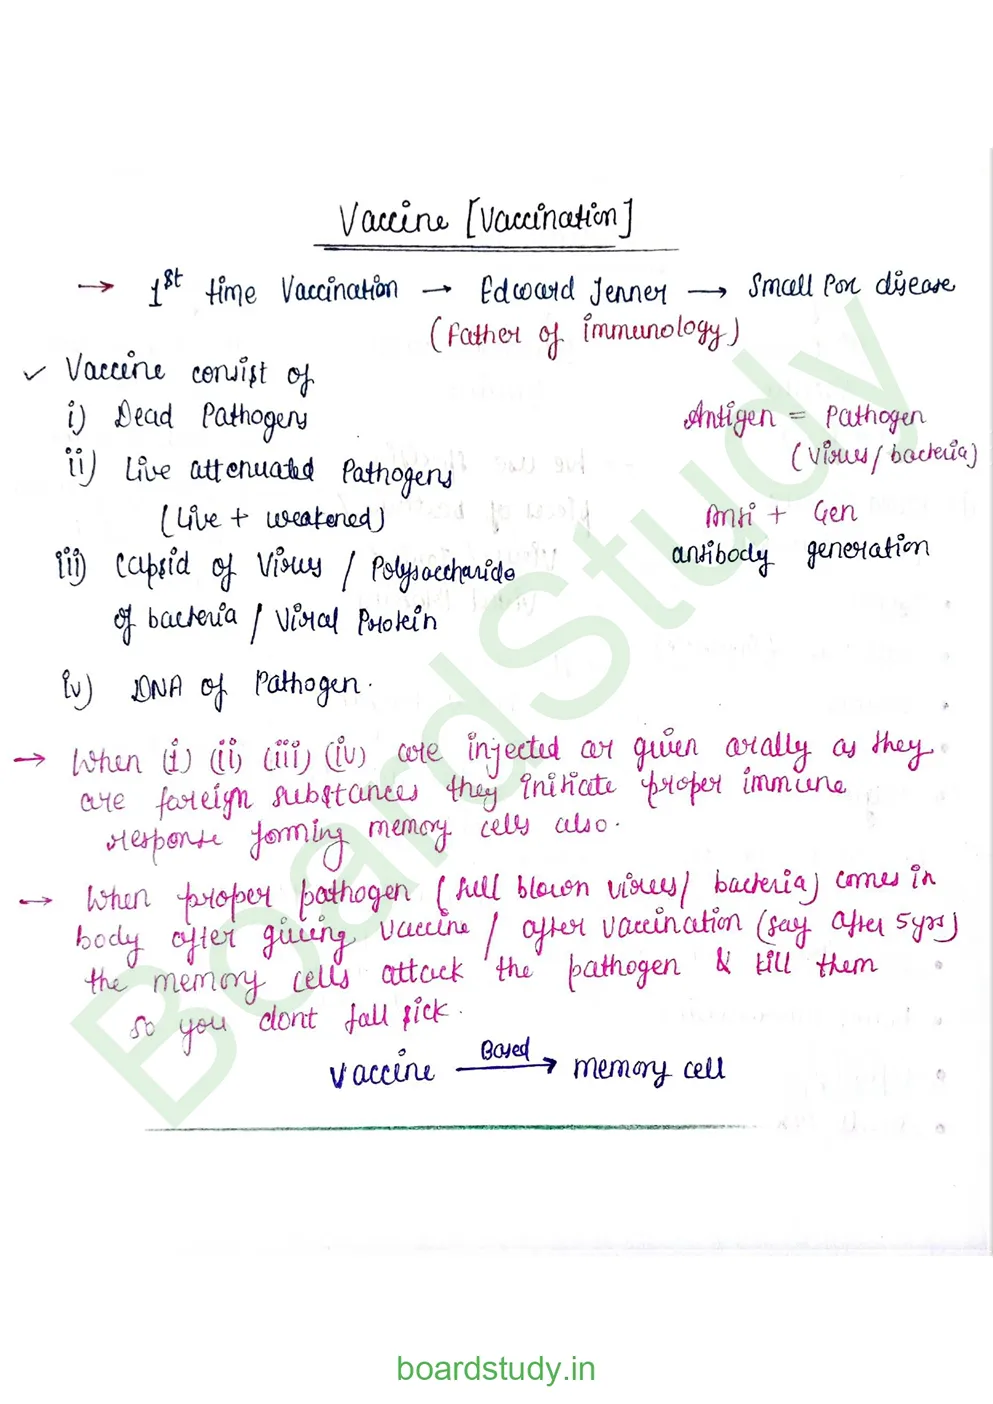 Vaccine [Vaccination]
→ 1st time Vaccination → Edward Jenner → Small Pox disease
(Father of immunology)
✓ Vaccine consist of
i) Dead Pathogens
ii) Live attenuated Pathogens
(Live + weakened)
iii) Capsid of Virus / Polysaccharide
of bacteria / Viral Protein
iv) DNA of Pathogen.
Antigen = Pathogen
(Virus / bacteria)
Anti + Gen
antibody generation
→ When (i) (ii) (iii) (iv) are injected or given orally as they
are foreign substances they initiate proper immune
response forming memory cells also.
→ When proper pathogen (full blown virus / bacteria) comes in
body after giving vaccine / after vaccination (say after 5 yrs)
the memory cells attack the pathogen & kill them
so you dont fall sick.
Vaccine Based → memory cell
BoardStudy
boardstudy.in